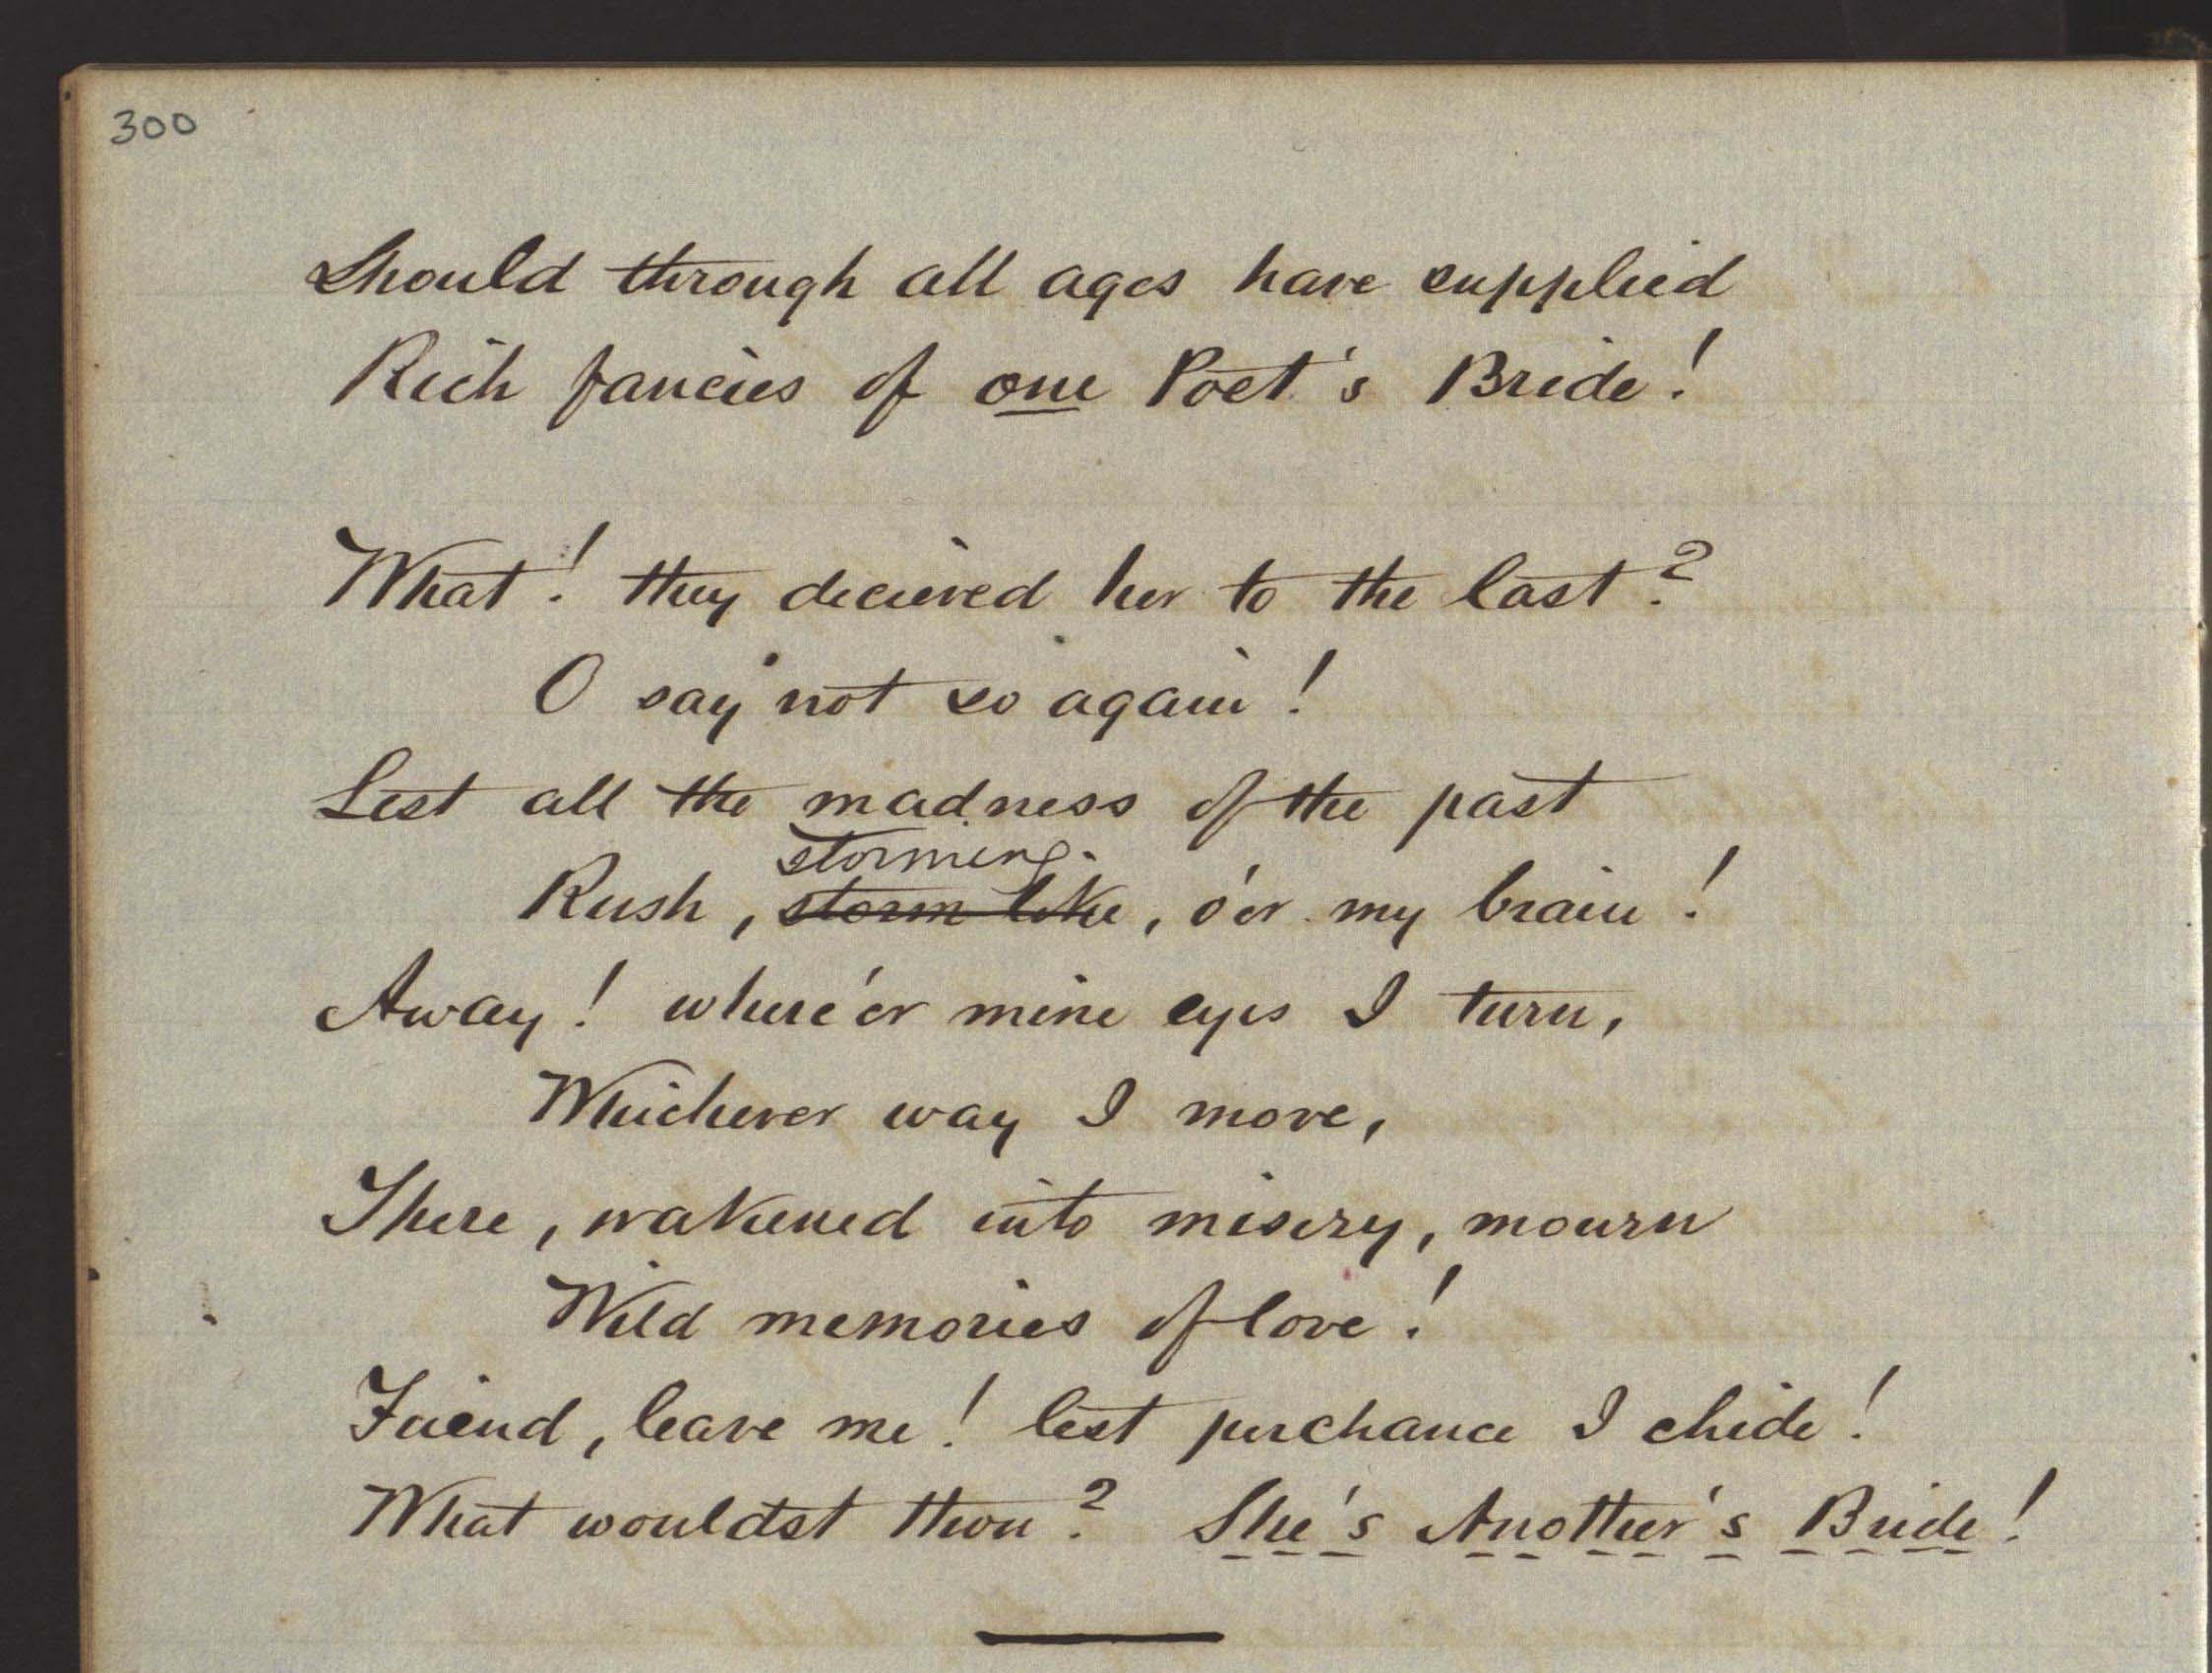 300
Should through all ages have supplied
Rich fancies of one Poet's Bride!
What! they decieved her to the last?
O say not so again!
Lest all the madness of the past
storming
Rush, storm like, o'er my brain!
Away! where'er mine eyes I turn,
Whichever way I move,
There, wakened into misery, mourn
Wild memories of love!
Friend, leave me! lest perchance I chide!
What wouldst thou? She's Another's Bride!